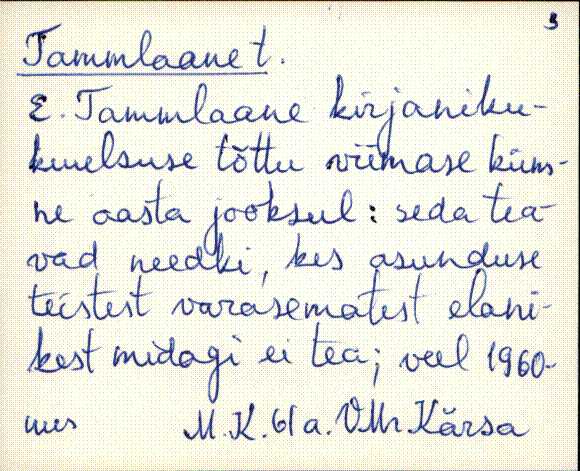 3
Tammlaane t.
E. Tammlaane kirjaniku-
kuulsuse tõttu viimase küm-
ne aasta jooksul: seda tea-
vad needki, kes asunduse
teistest varasematest elani-
kest midagi ei tea; veel 1960-
nes M. K. 61 a. VMr. Kärsa